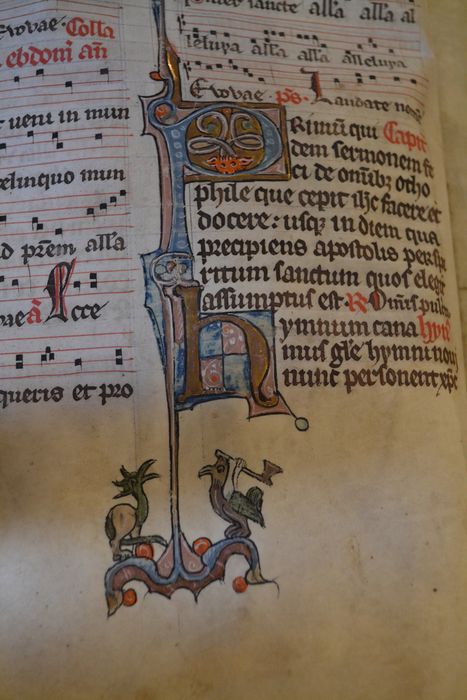 Evovae. Colla
ebdom
t ueni in mun
elinquo mun
d prem alla
vae a Ecce
queris et pro
sancte alla alla al
leluya alla alla alleluya
Evovae. ps. Laudate
Rimū qui Capit
dem sermonem fe
ci de omnibz otho
phile que cepit ihc facere et
docere: usqz in diem qua
precipiens apostolis per spi
ritum sanctum quos elegit
assumptus est. R Omis pulc
ymnum cana hym
mus gle hymni noui
nunc personent xpc